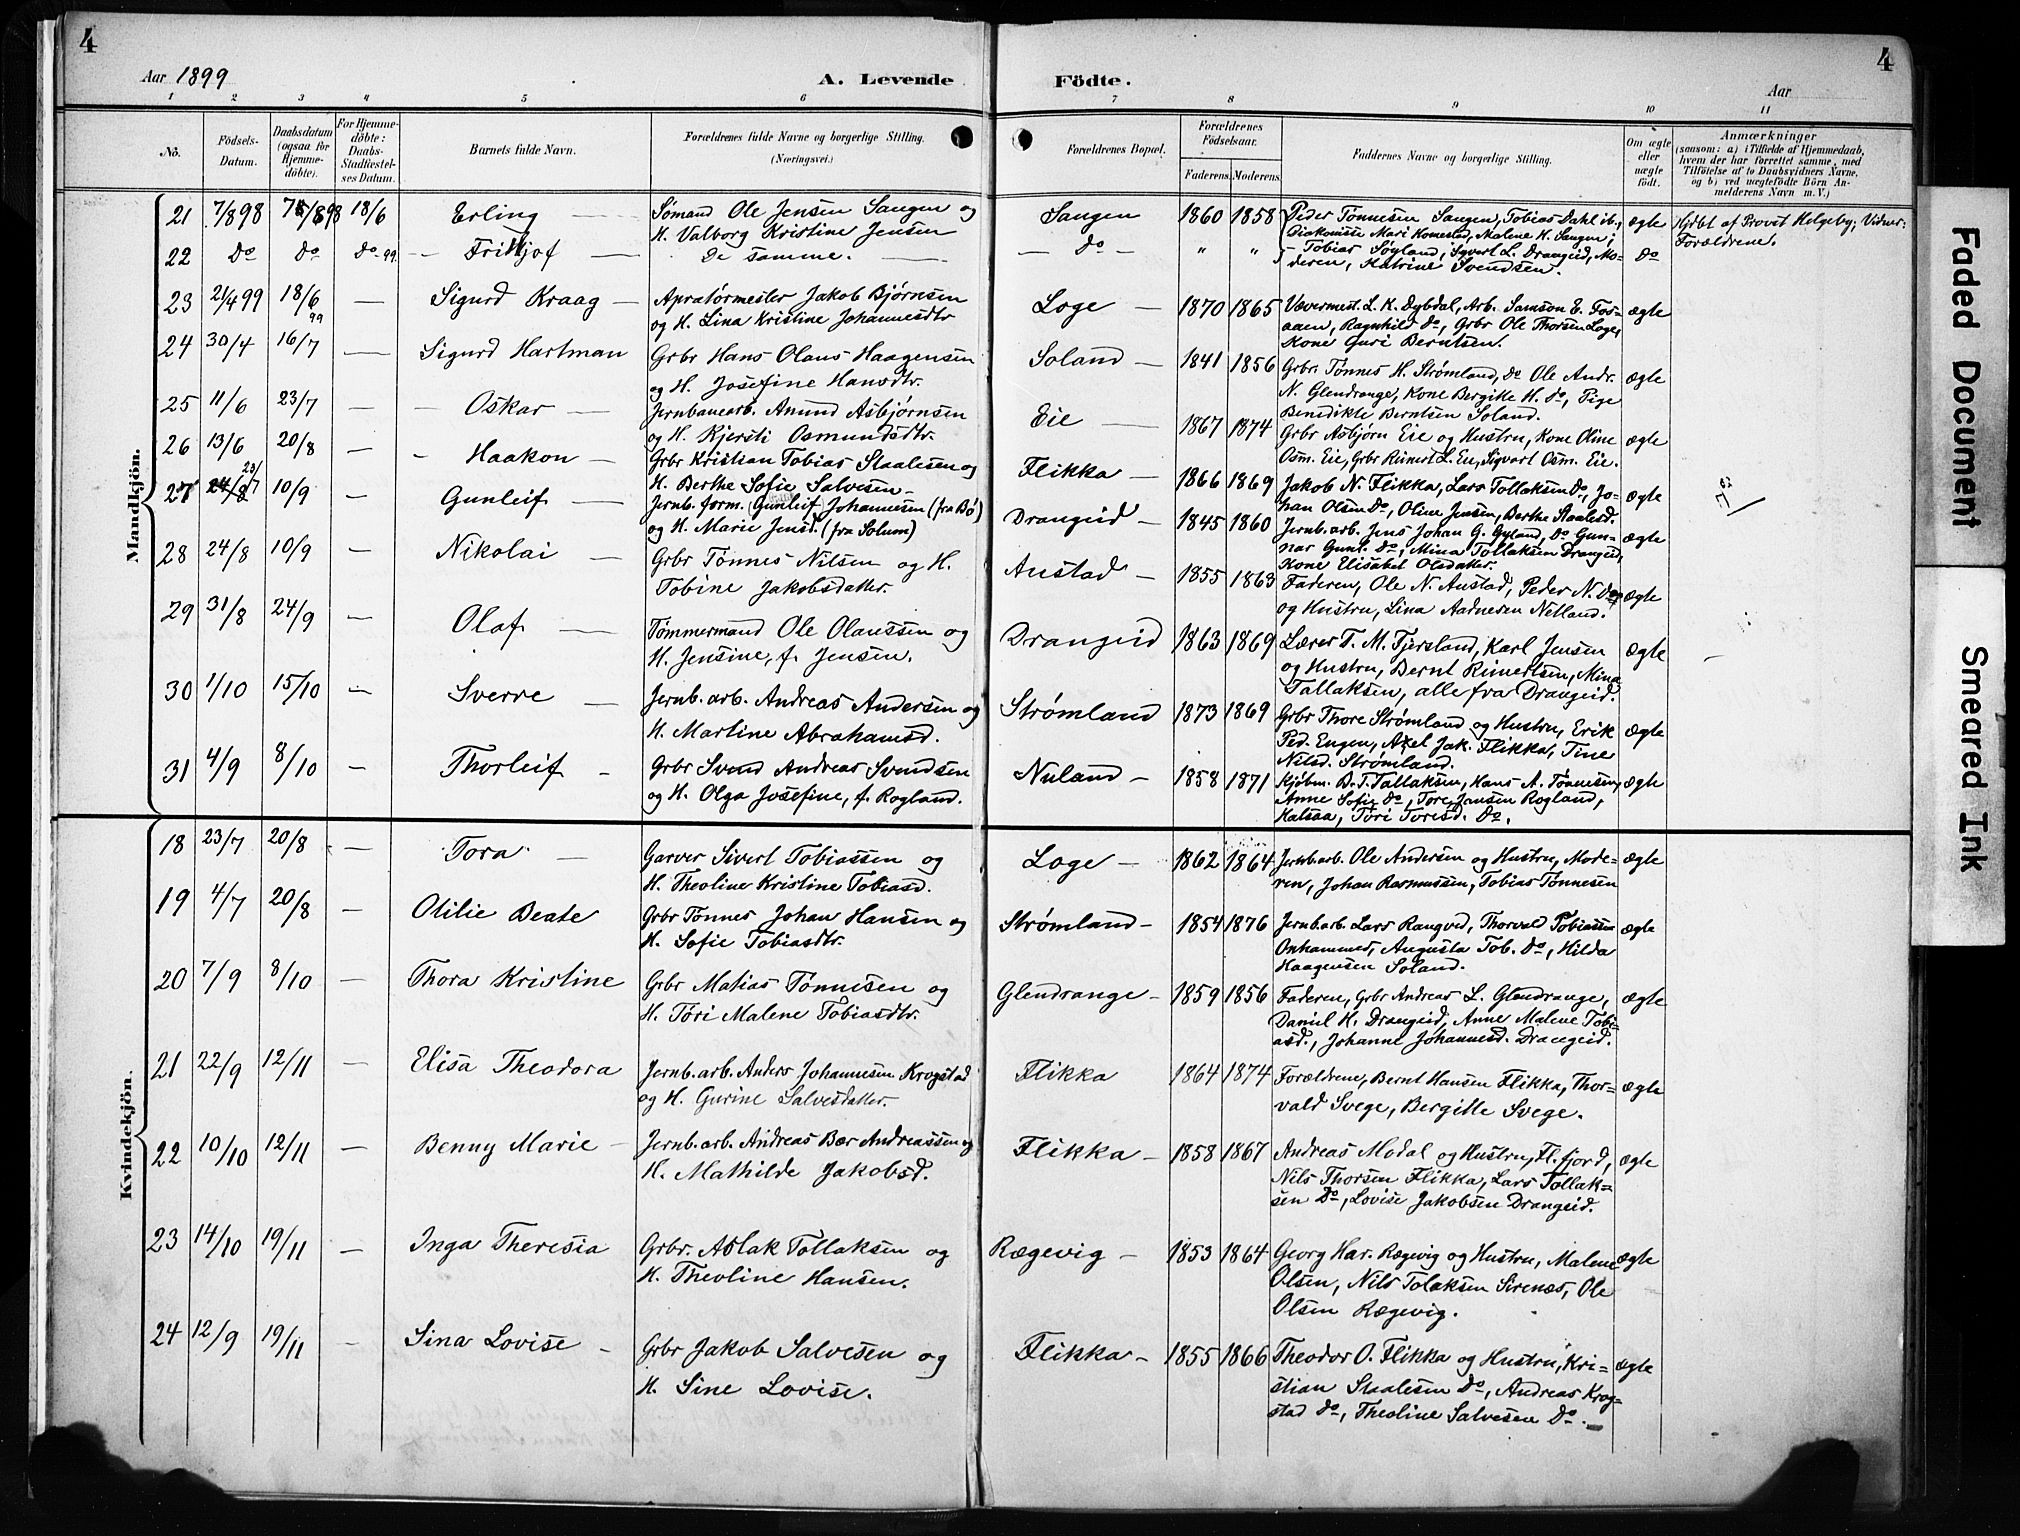 4
Aar 1899
A. Levende
Födte.
Aar
4
1 2 3 4 5 6 7 8 9 10 11
Nö.
Födsels-
Datum.
Daabsdatum
(ogsaa for
Hjemme-
döbte).
For Hjemme-
döbte:
Daabs-
Stadfæstel-
ses Datum.
Barnets fulde Navn.
Forældrenes fulde Navne og borgerlige Stilling.
(Næringsvei.)
Forældrenes Bopæl.
Forældrenes
Födselsaar.
Faderens. Moderens.
Faddernes Navne og borgerlige Stilling.
Om ægte
eller
uægte
födt.
Anmærkninger
(saasom: a) i Tilfælde af Hjemmedaab,
hvem der har forrettet samme, med
Tilföielse af to Daabsvidners Navne,
og b) ved uægtefödte Börn An-
melderens Navn m. V.)
Mandkjön.
21 7/8 98 18/6 Erling Sømand Ole Jensen Sangen og
H. Valborg Kristine Jensen
Sangen 1860 1858 Peder Tønnesen Sangen, Tobias Dahl ib.,
Mari Komestad, Malene H. Sangen;
ægte Hjdbt af Provst Helgeby; Vidner:
Forældrene.
22 Do Do Do 99. Frithjof De samme.
Do " " Tobias Søyland, Syvert L. Drangeid, Mo-
deren, Katrine Svendsen.
Do
23 21/4 99 18/6 99 Sigurd Kraag Apratørmester Jakob Bjørnsen
og H. Lina Kristine Johannesdtr
Loge 1870 1865 Vævermest. L. K. Dybdal, Arb. Samson E. Fos-
aaen, Ragnhild Do, Grbr Ole Thorsen Loge,
Kone Guri Berntsen.
ægte
24 30/4 16/7 Sigurd Hartman Grbr Hans Olaus Haagensen
og H. Josefine Hansdtr.
Soland 1841 1856 Grbr. Tønnes H. Strømland, Do Ole Andr.
N. Glendrange, Kone Bergitte H. Do, Pige
Benedikte Berntsen Soland.
ægte
25 11/6 23/7 Oskar Jernbanearb. Anund Asbjørnsen
og H. Kjersti Osmundsdtr.
Eie 1867 1874 Grbr Asbjørn Eie og Hustru, Kone Oline
Osm. Eie, Grbr Reinert L. Eie, Sigvart Osm. Eie.
ægte
26 13/6 20/8 Haakon Grbr Kristian Tobias Staalesen og
H. Berthe Sofie Salvesen
Flikka 1866 1869 Jakob N. Flikka, Lars Tollaksen Do, Jo-
han Olsen Do, Oline Jensen, Berthe Staalesd.
ægte
27 23/7 24/8 10/9 Gunleif Jernb. form. Gunleif Johannesen (fra Bø)
og H. Marie Jensd. (fra Solum)
Drangeid 1845 1860 Jernb. arb. Jens Johan G. Gyland, Do Gun-
nar Gunl. Do, Mina Tollaksen Drangeid,
Kone Elisabet Olsdatter.
ægte
28 24/8 10/9 Nikolai Grbr Tønnes Nilsen og H.
Tobine Jakobsdatter.
Austad 1855 1863 Faderen, Ole N. Austad, Peder N. Do
og Hustru, Lina Aadnesen Netland.
ægte
29 31/8 24/9 Olaf Tømmermand Ole Olaussen og
H. Jensine, f. Jensen.
Drangeid 1863 1869 Lærer T. M. Fjersland, Karl Jensen
og Hustru, Bernt Reinertsen, Mina
Tallaksen, alle fra Drangeid.
ægte
30 1/10 15/10 Sverre Jernb. arb. Andreas Andersen og
H. Martine Abrahamsd.
Strømland 1873 1869 Grbr Thore Strømland og Hustru, Erik
Ped. Engen, Axel Jak. Flikka, Tine
Nilsd. Strømland.
ægte
31 4/9 8/10 Thorleif Grbr Svend Andreas Svendsen
og H. Olga Josefine, f. Rogland.
Nuland 1858 1871 Kjøbm. B. T. Tallaksen, Hans A. Tønnesen,
Anne Sofie Do, Tore Jansen Rogland,
Katsaa, Tori Toresd. Do.
ægte
Kvindekjön.
18 23/7 20/8 Tora Garver Sivert Tobiassen og
H. Theoline Kristine Tobiasd.
Loge 1862 1864 Jernb. arb. Ole Andersen og Hustru, Mode-
ren, Johan Rasmussen, Tobias Tønnesen
ægte
19 4/7 20/8 Otilie Beate Grbr Tønnes Johan Hansen og
H. Sofie Tobiasdtr.
Strømland 1854 1876 Jernb. arb. Lars Rangved, Thorvald Tobiassen
Onhammer, Augusta Tob. Do, Hilda
Haagensen Soland.
ægte
20 7/9 8/10 Thora Kristine Grbr Matias Tønnesen og
H. Tori Malene Tobiasdtr.
Glendrange 1859 1856 Faderen, Grbr Andreas L. Glendrange,
Daniel H. Drangeid, Anne Malene Tobi-
asd., Johanne Johannesd. Drangeid.
ægte
21 22/9 12/11 Elisa Theodora Jernb. arb. Anders Johannesen Krogstad
og H. Gurine Salvesdatter.
Flikka 1864 1874 Forældrene, Bernt Hansen Flikka, Thor-
vald Svege, Bergitte Svege.
ægte
22 10/10 12/11 Benny Marie Jernb. arb. Andreas Bær Andreassen og
H. Mathilde Jakobsd.
Flikka 1858 1867 Andreas Modal og Hustru, Fl. fjord,
Nils Thorsen Flikka, Lars Tollak-
sen Do, Lovise Jakobsen Drangeid.
ægte
23 14/10 19/11 Inga Theresia Grbr. Aslak Tollaksen og
H. Theoline Hansen.
Rægevig 1853 1864 Georg Har. Rægevig og Hustru, Malene
Olsen, Nils Tolaksen Sirenæs, Ole
Olsen Rægevig.
ægte
24 12/9 19/11 Sina Lovise Grbr Jakob Salvesen og
H. Sine Lovise.
Flikka 1855 1866 Theodor O. Flikka og Hustru, Kri-
stian Staalesen Do, Andreas Krog-
stad Do, Theoline Salvesen Do.
ægte
Faded Document
Smeared Ink